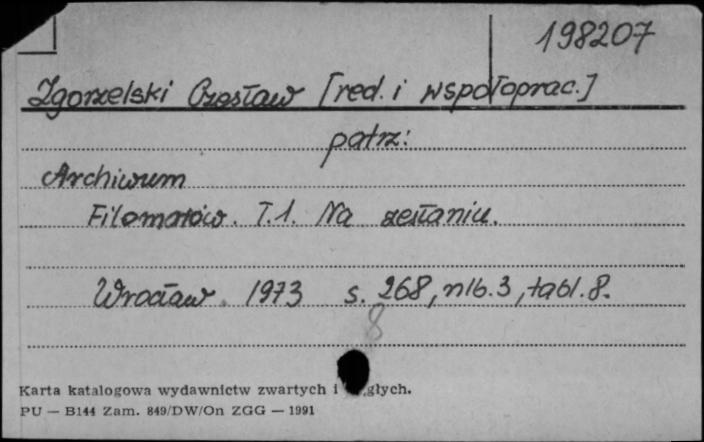 198207
Zgorzelski Czesław [red. i współoprac.]
patrz:
Archiwum
Filomatów. T.1. Na zesłaniu.
Wrocław. 1973 s. 268, nlb. 3, tabl. 8.
8
Karta katalogowa wydawnictw zwartych i głych.
PU — B144 Zam. 849/DW/On ZGG — 1991